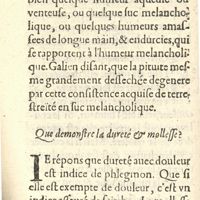 bien quelque humeur aqueuse ou
venteuse, ou quelque suc melancho-
lique, ou quelques humeurs amas-
sées de longue main, & endurcies, qui
se rapportent à l'humeur melancholi-
que. Galien disant, que la pituite mes-
me grandement dessechée degenere
par cette consistence acquise de terre-
streité en suc melancholique.
Que demonstre la dureté & mollesse?
IE répons que dureté avec douleur
est indice de phlegmon. Que si
elle est exempte de douleur, c'est vn